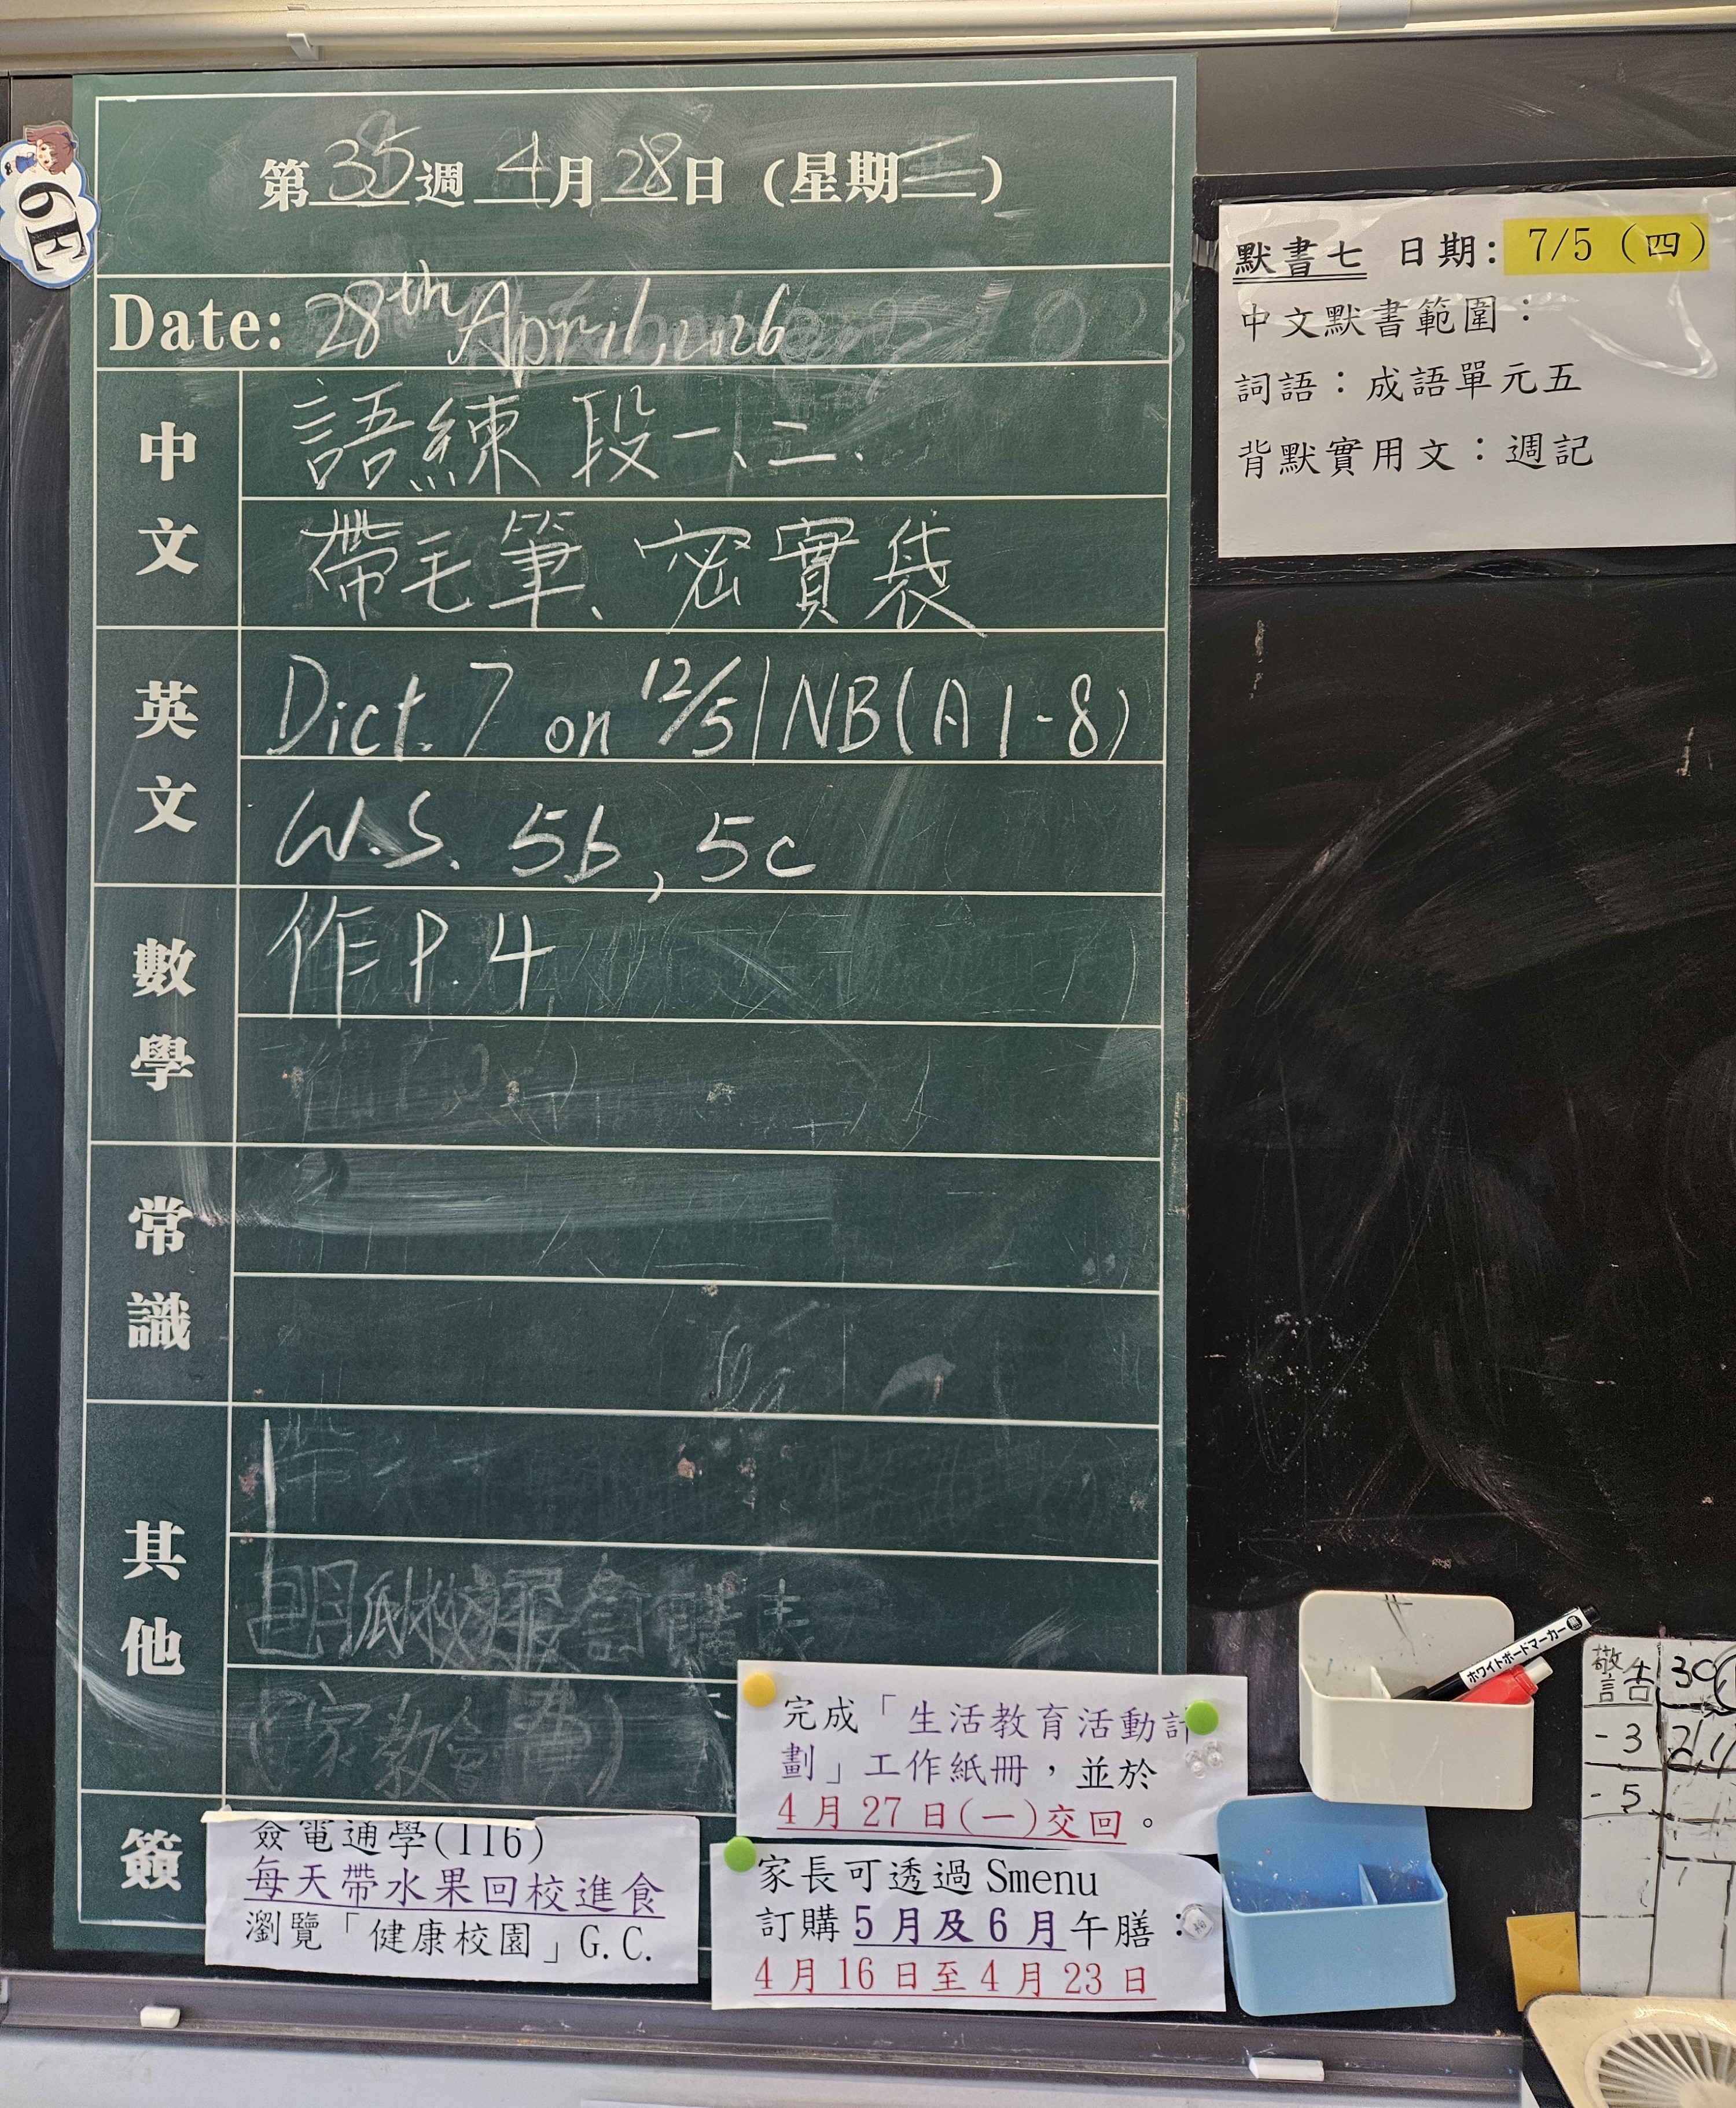 6E
第35週 4月28日 (星期二)
Date: 28th April, 2026
中文
語練 段一、二、
帶毛筆、密實袋
英文
Dict. 7 on 12/5 | NB(A 1-8)
W.S. 5b, 5c
數學
作 P.4
常識
其他
(家教會)
簽
簽電通學(116)
每天帶水果回校進食
瀏覽「健康校園」G.C.
完成「生活教育活動計
劃」工作紙冊，並於
4 月 27 日(一)交回。
家長可透過 Smenu
訂購 5 月及 6 月午膳：
4 月 16 日至 4 月 23 日
默書七 日期: 7/5 (四)
中文默書範圍：
詞語：成語單元五
背默實用文：週記
ホワイトボードマーカー
警告 30
-3 21
-5